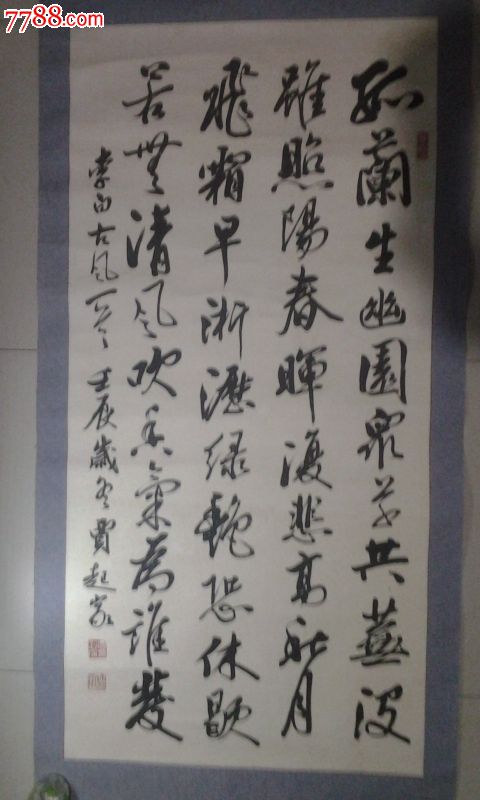 7788.com
孤蘭生幽園眾草共蕪沒
雖照陽春暉復悲高秋月
飛霜早淅瀝綠艷恐休歇
若無清風吹香氣為誰發
李白古風一首 壬辰歲冬賈起家